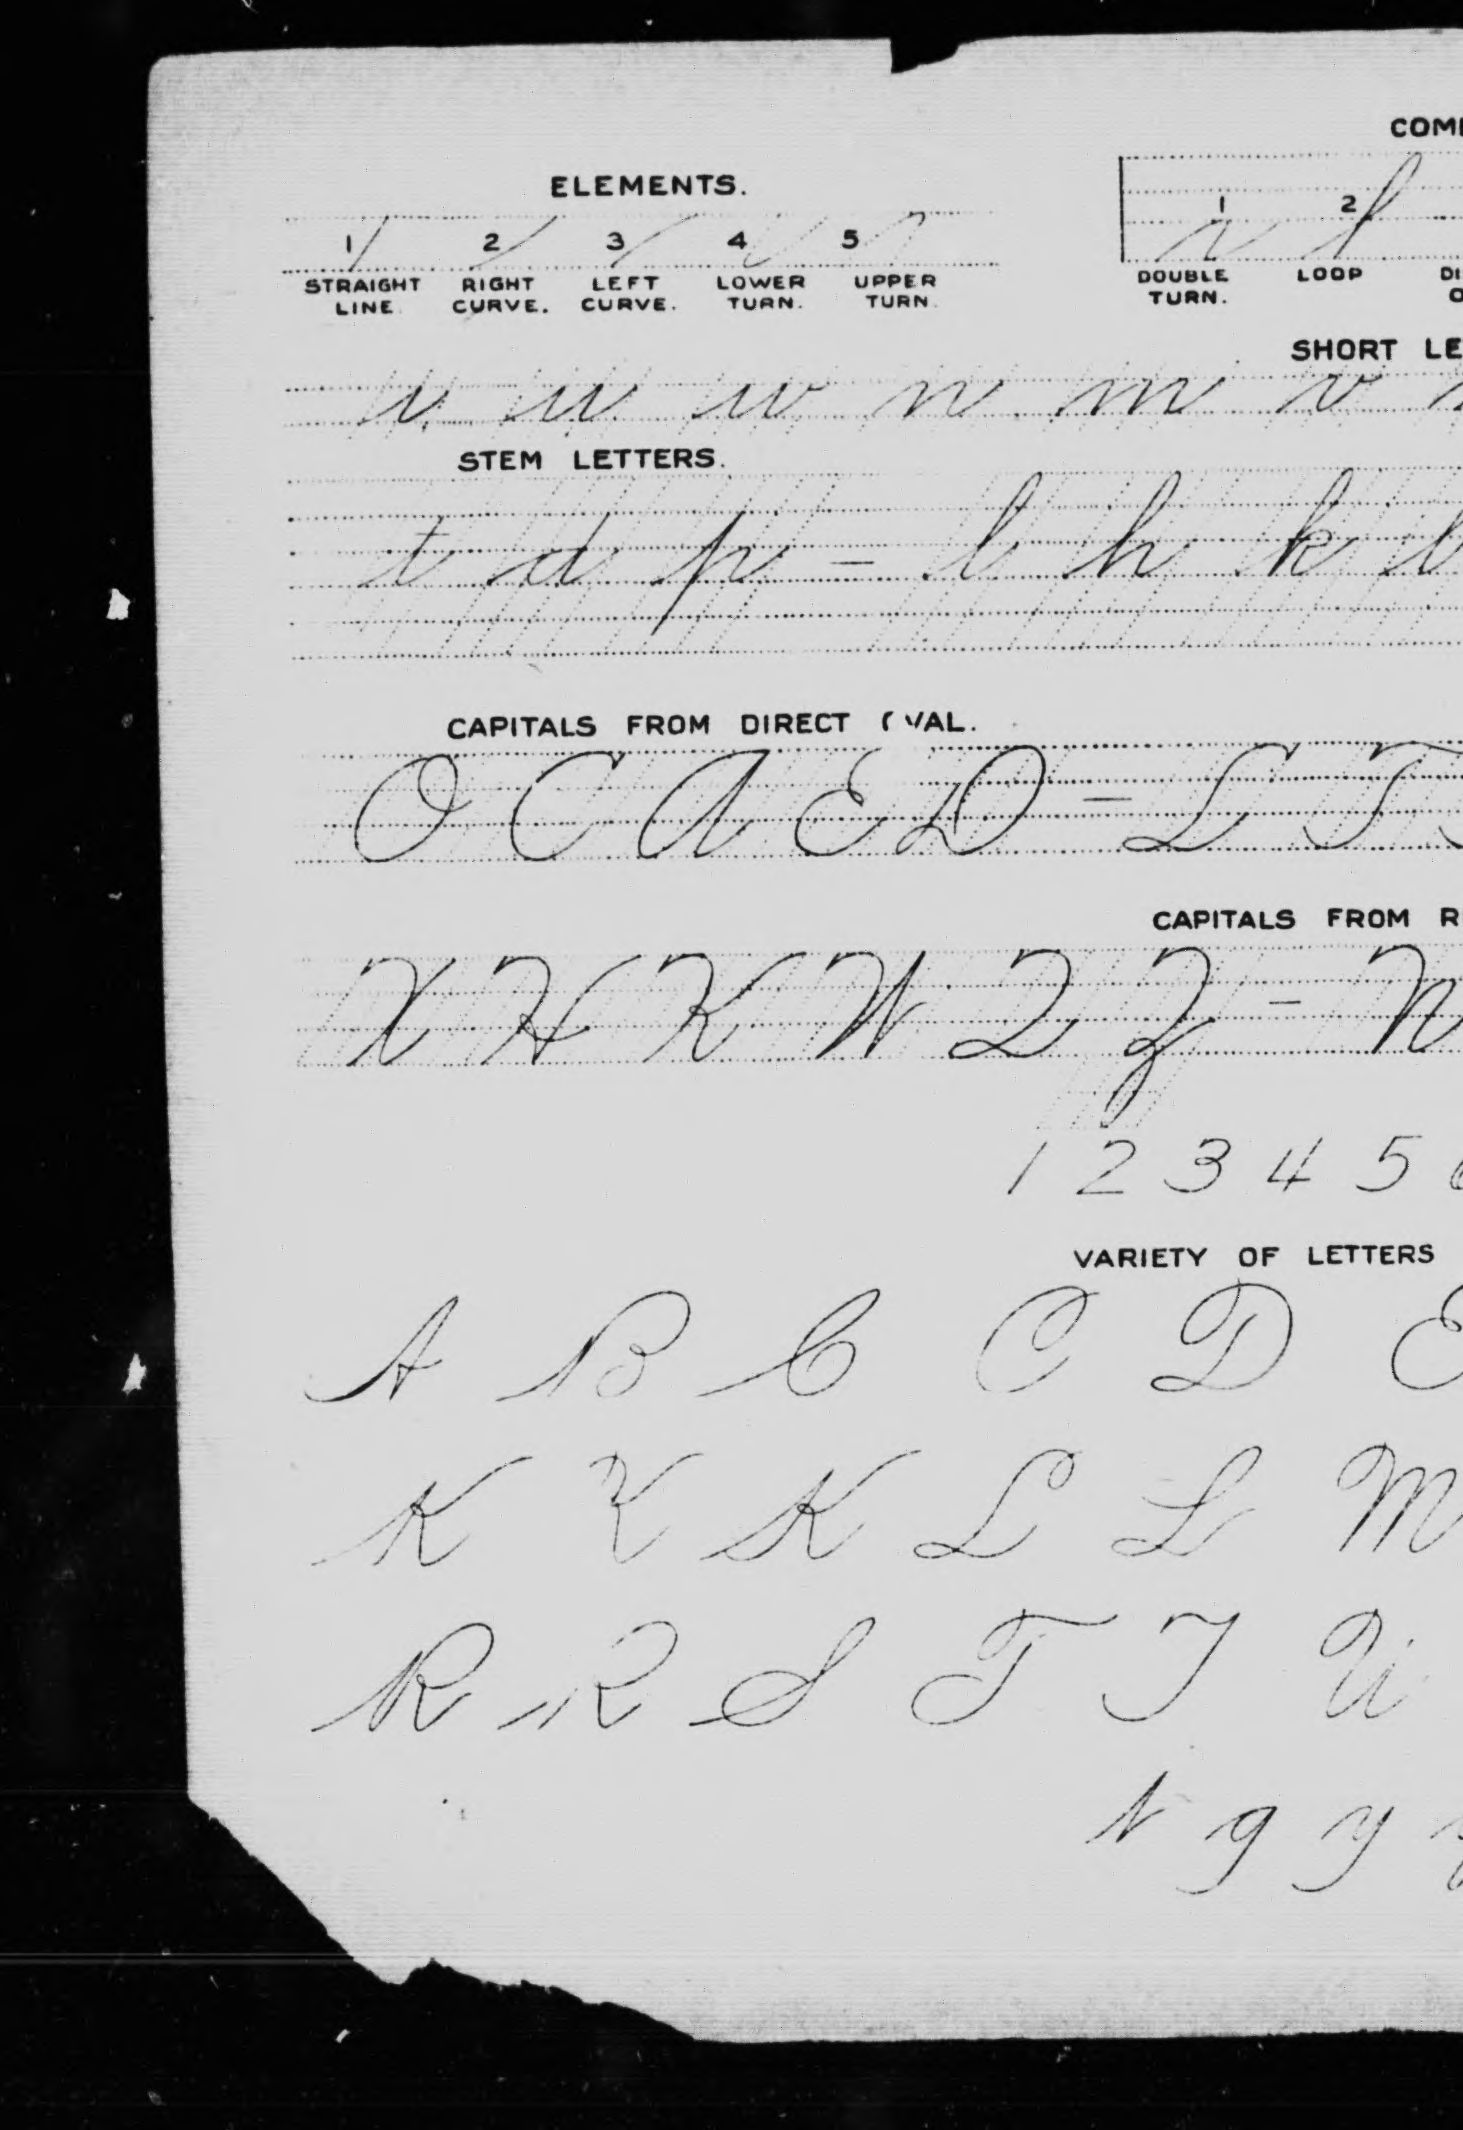 COM
ELEMENTS.
1 2 3 4 5
STRAIGHT LINE. RIGHT CURVE. LEFT CURVE. LOWER TURN. UPPER TURN.
1 2
DOUBLE TURN. LOOP DI
SHORT LE
i u w n m v
STEM LETTERS.
t d p – l h k b
CAPITALS FROM DIRECT OVAL.
O C A E D – L T
CAPITALS FROM R
X H K W Q Z – N
1 2 3 4 5 6
VARIETY OF LETTERS
A B C C D E
K K K L L M
R R S T T U
r g y